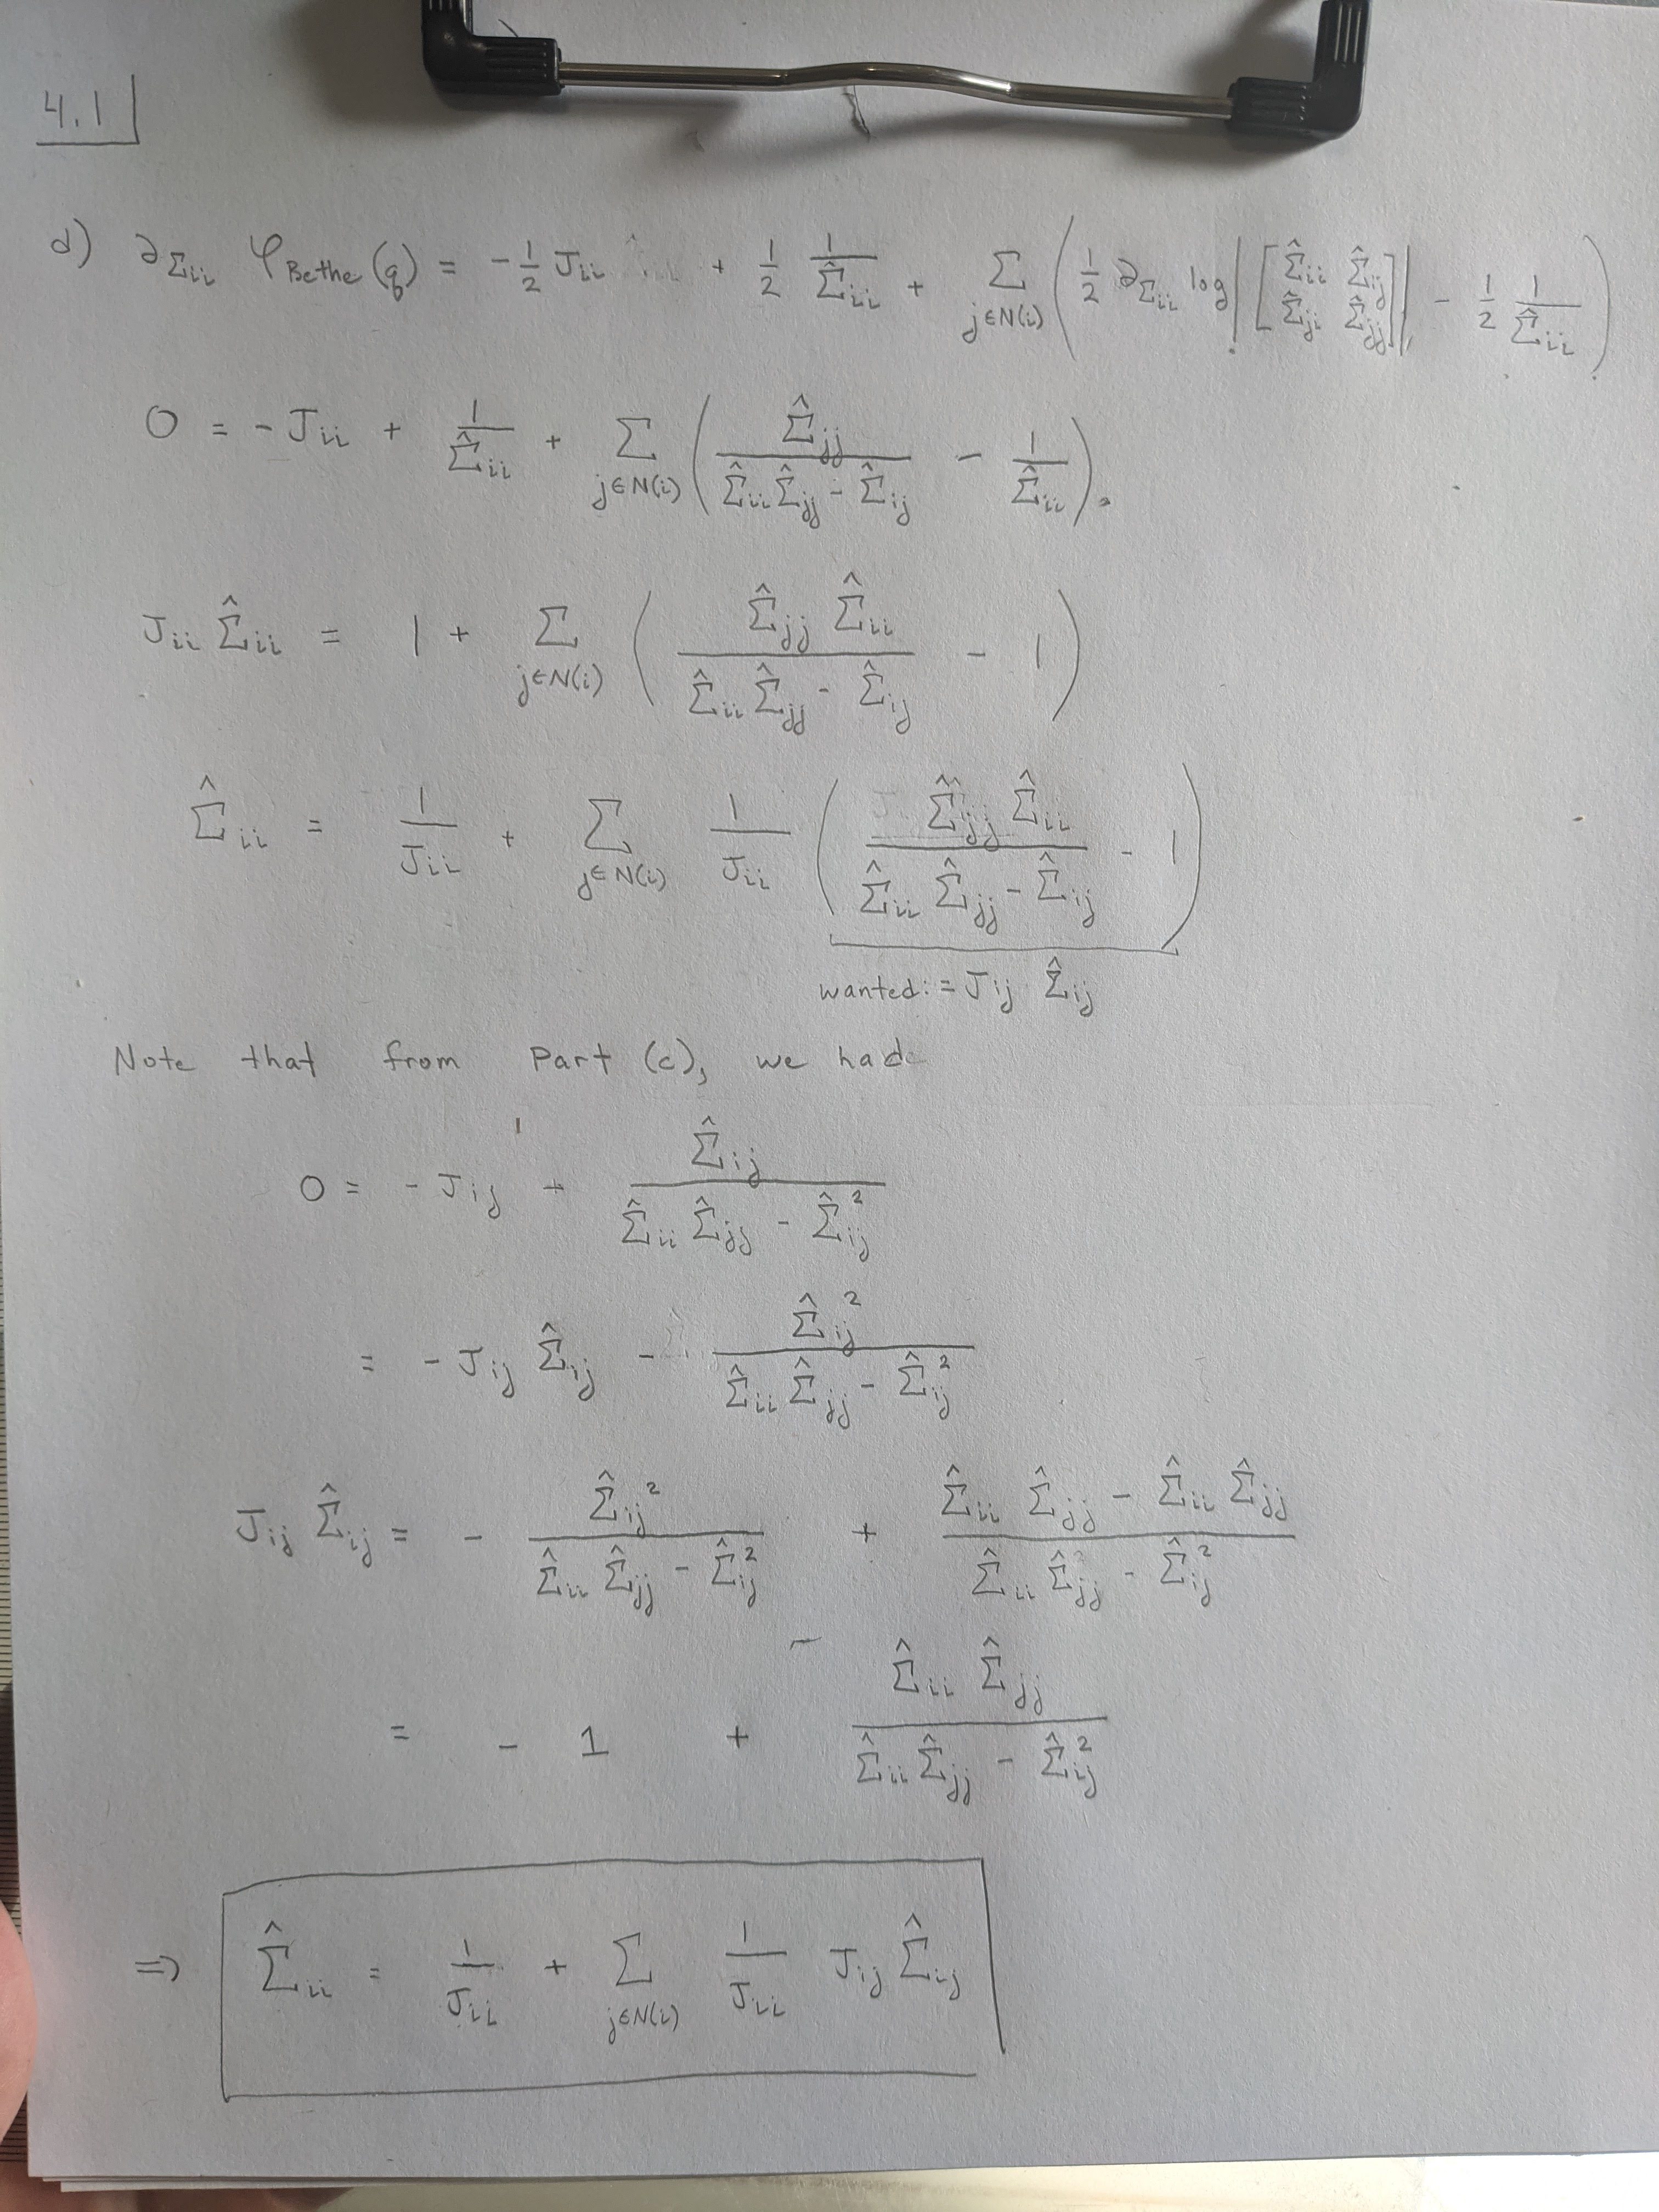 4.1
d) ∂_{Σ_{ii}} φ_{Bethe}(q) = -\frac{1}{2} J_{ii} + \frac{1}{2} \frac{1}{\hat{Σ}_{ii}} + \sum_{j∈N(i)} ( \frac{1}{2} ∂_{Σ_{ii}} log | [ \hat{Σ}_{ii} \hat{Σ}_{ij} \hat{Σ}_{ji} \hat{Σ}_{jj} ] | - \frac{1}{2} \frac{1}{\hat{Σ}_{ii}} )
0 = - J_{ii} + \frac{1}{\hat{Σ}_{ii}} + \sum_{j∈N(i)} ( \frac{\hat{Σ}_{jj}}{\hat{Σ}_{ii} \hat{Σ}_{jj} - \hat{Σ}_{ij}} - \frac{1}{\hat{Σ}_{ii}} ).
J_{ii} \hat{Σ}_{ii} = 1 + \sum_{j∈N(i)} ( \frac{\hat{Σ}_{jj} \hat{Σ}_{ii}}{\hat{Σ}_{ii} \hat{Σ}_{jj} - \hat{Σ}_{ij}} - 1 )
\hat{Σ}_{ii} = \frac{1}{J_{ii}} + \sum_{j∈N(i)} \frac{1}{J_{ii}} ( \frac{\hat{Σ}_{jj} \hat{Σ}_{ii}}{\hat{Σ}_{ii} \hat{Σ}_{jj} - \hat{Σ}_{ij}} - 1 )
wanted: = J_{ij} \hat{Σ}_{ij}
Note that from Part (c), we had
0 = - J_{ij} - \frac{\hat{Σ}_{ij}}{\hat{Σ}_{ii} \hat{Σ}_{jj} - \hat{Σ}_{ij}^2}
= - J_{ij} \hat{Σ}_{ij} - \frac{\hat{Σ}_{ij}^2}{\hat{Σ}_{ii} \hat{Σ}_{jj} - \hat{Σ}_{ij}^2}
J_{ij} \hat{Σ}_{ij} = - \frac{\hat{Σ}_{ij}^2}{\hat{Σ}_{ii} \hat{Σ}_{jj} - \hat{Σ}_{ij}^2} + \frac{\hat{Σ}_{ii} \hat{Σ}_{jj} - \hat{Σ}_{ii} \hat{Σ}_{jj}}{\hat{Σ}_{ii} \hat{Σ}_{jj} - \hat{Σ}_{ij}^2}
= - 1 + \frac{\hat{Σ}_{ii} \hat{Σ}_{jj}}{\hat{Σ}_{ii} \hat{Σ}_{jj} - \hat{Σ}_{ij}^2}
⇒ \hat{Σ}_{ii} = \frac{1}{J_{ii}} + \sum_{j∈N(i)} \frac{1}{J_{ii}} J_{ij} \hat{Σ}_{ij}